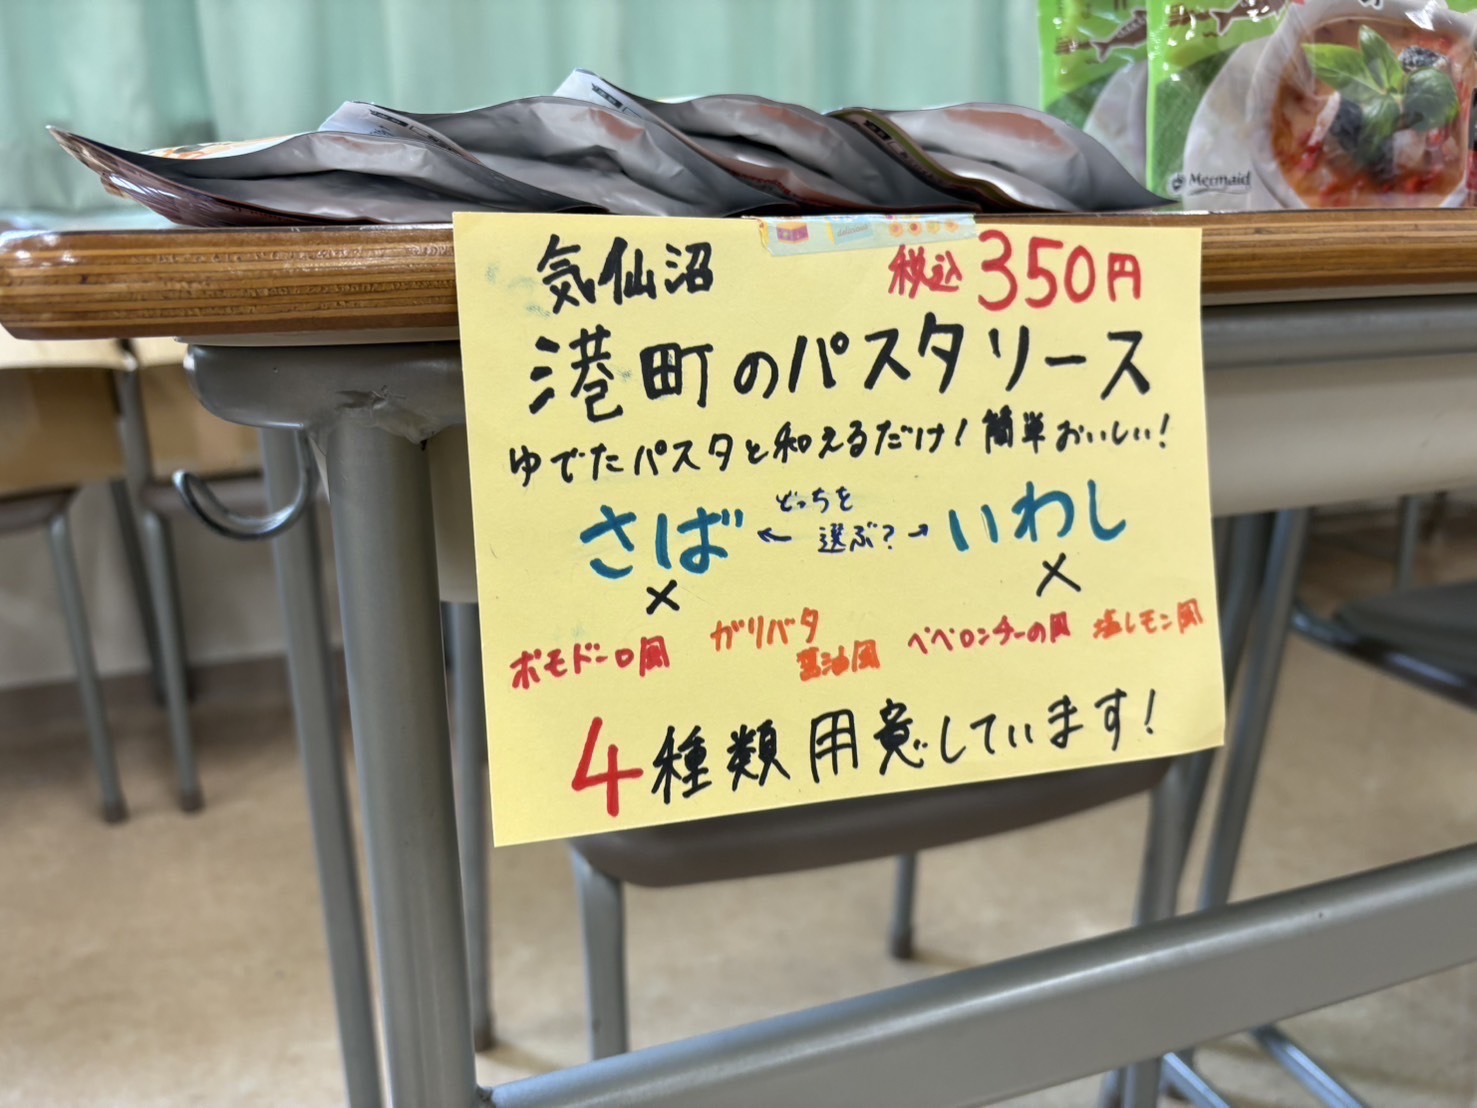 気仙沼
税込350円
港町のパスタソース
ゆでたパスタと和えるだけ！簡単おいしい！
さば ← どっちを選ぶ？ → いわし
× ×
ポモドーロ風 ガリバタ醤油風 ペペロンチーの風 塩レモン風
4種類用意しています！
Mermaid